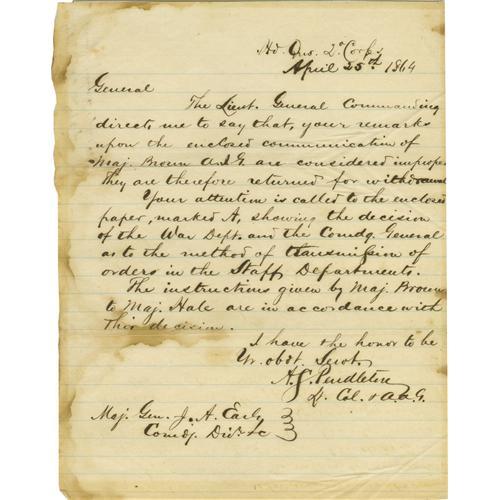 Hd. Qrs. 2º Corps
April 25th 1864
General
The Lieut. General Commanding
directs me to say that, your remarks
upon the enclosed communication of
Maj. Brown A.I.G. are considered improper
They are therefore returned for withdrawal
Your attention is called to the enclosed
paper, marked A, showing the decision
of the War Dept. and the Comdg. General
as to the method of transmission of
orders in the Staff Departments.
The instructions given by Maj. Brown
to Maj. Hale are in accordance with
this decision.
I have the honor to be
Yr. obdt. Servt.
A. S. Pendleton
Lt. Col. & A.A.G.
Maj. Gen. J. A. Early
Comdg. Div. &c